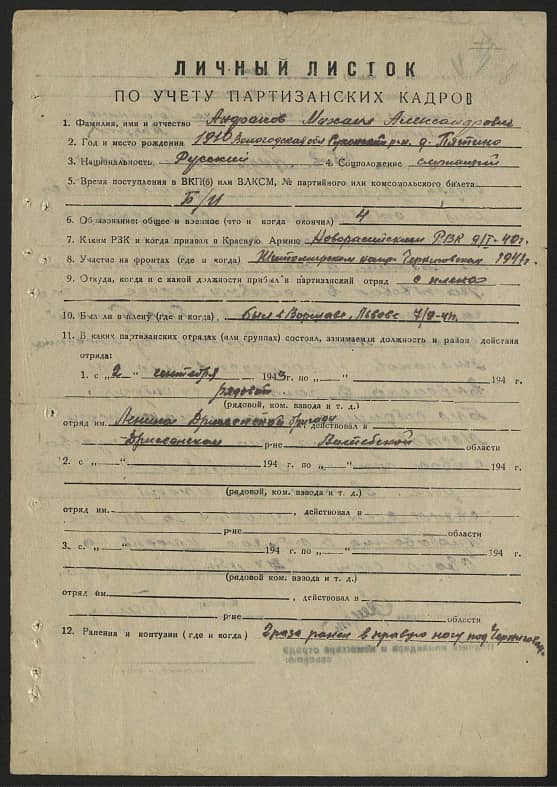 ЛИЧНЫЙ ЛИСТОК
ПО УЧЕТУ ПАРТИЗАНСКИХ КАДРОВ
1. Фамилия, имя и отчество Андронов Михаил Александрович
2. Год и место рождения 1910 Вологодская обл д. Пятино
3. Национальность Русский 4. Соцположение служащий
5. Время поступления в ВКП(б) или ВЛКСМ, № партийного или комсомольского билета
Б/П
6. Образование: общее и военное (что и когда окончил) 4
7. Каким РЗК и когда призван в Красную Армию Новоросийским РВК 40г.
8. Участие на фронтах (где и когда) Житомирском напр. 1941г
9. Откуда, когда и с какой должности прибыл в партизанский отряд с плена
10. Был ли в плену (где и когда) был в Варшаве, Львове 7/9-41г.
11. В каких партизанских отрядах (или группах) состоял, занимаемая должность и район действия
отряда:
1. с „2 сентября 1943 г. по „ — “ 194 г.
рядовой
(рядовой, ком. взвода и т. д.)
отряд им. Ленина Дриссенской бригады, действовал в
Дриссенском р-не Витебской области
2. с „ — “ 194 г. по „ — “ 194 г.
(рядовой, ком. взвода и т. д.)
отряд им. , действовал в
р-не области
3. с. „ “ 194 г. по „ — “ 194 г.
(рядовой, ком. взвода и т. д.)
отряд им. , действовал в
р-не области
12. Ранения и контузии (где и когда) 2 раза ранен в правую ногу под Черниговом